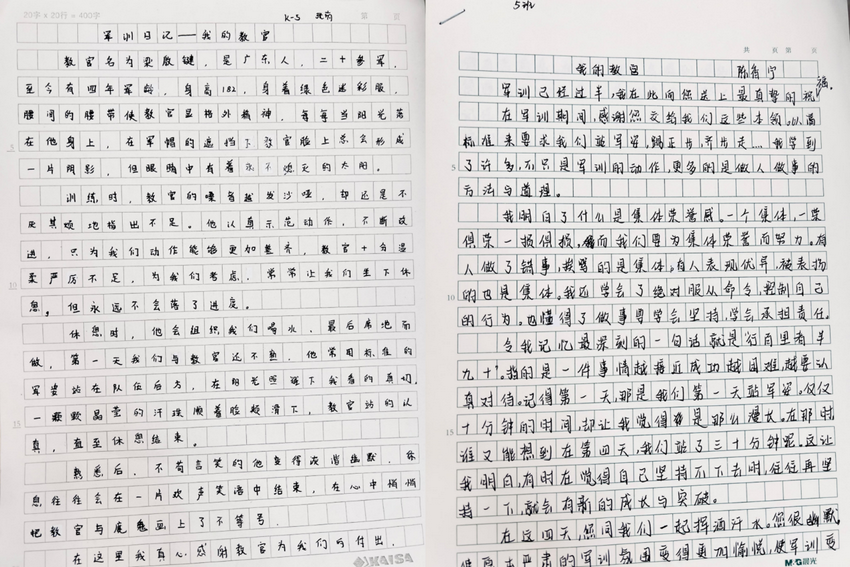 20字 x 20行 = 400字
第 页
K-5
军训日记——我的教官
教官名为亚殷键，是广东人，二十参军，
至今有四年军龄，身高182，身着绿色迷彩服，
腰间的腰带使教官显格外精神，每每当阳光落
在他身上，在军帽的遮挡下教官脸上总会形成
5
一片阴影，但眼睛中有着永不熄灭的太阳。
训练时，教官的嗓音越发沙哑，却还是不
厌其烦地指出不足。他认真示范动作，不断改
进，只为我们动作能够更加整齐，教官十分温
柔严厉不足，为我们考虑，常常让我们坐下休
10
息，但永远不会落了进度。
休息时，他会组织我们喝水，最后席地而
做，第一天我们与教官还不熟，他常用标准的
军姿站在队伍后方，在阳光照耀下我看的真切，
一颗颗晶莹的汗珠顺着脸颊滑下，教官站的认
15
真，直至休息结束。
熟悉后，不苟言笑的他变得诙谐幽默，休
息往往会在一片欢声笑语中结束，在心中悄悄
把教官与魔鬼画上了不等号。
在这里我真心感谢教官为我们的付出，
KAISA
5班
共 页 第 页
我的教官 陈香宁
军训已经过半，我在此向您送上最真挚的祝
福。
在军训期间，感谢您交给我们这些本领。以高
标准来要求我们站军姿，踢正步，齐步走……我学到
5
了许多，不只是军训的动作，更多的是做人做事的
方法与道理。
我明白了什么是集体荣誉感。一个集体，一荣
俱荣一损俱损，而我们要为集体荣誉而努力。有
人做了错事，挨骂的是集体，有人表现优异，被表扬
10
的也是集体。我还学会了绝对服从命令，控制自己
的行为。也懂得了做事要学会坚持，学会承担责任。
令我记忆最深刻的一句话就是"行百里者半
九十"。指的是一件事情越接近成功越困难，越要认
真对待。记得第一天，那是我们第一天站军姿。仅仅
十分钟的时间，却让我觉得是那么漫长。在那时
15
谁又能想到在第四天，我们站了三十分钟呢。这让
我明白，有时在觉得自己坚持不下去时，往往再坚
持一下，就会有新的成长与突破。
在这四天，您同我们一起挥洒汗水。您很幽默，
严肃的军训氛围变得更加愉悦，使军训变
M&G晨光